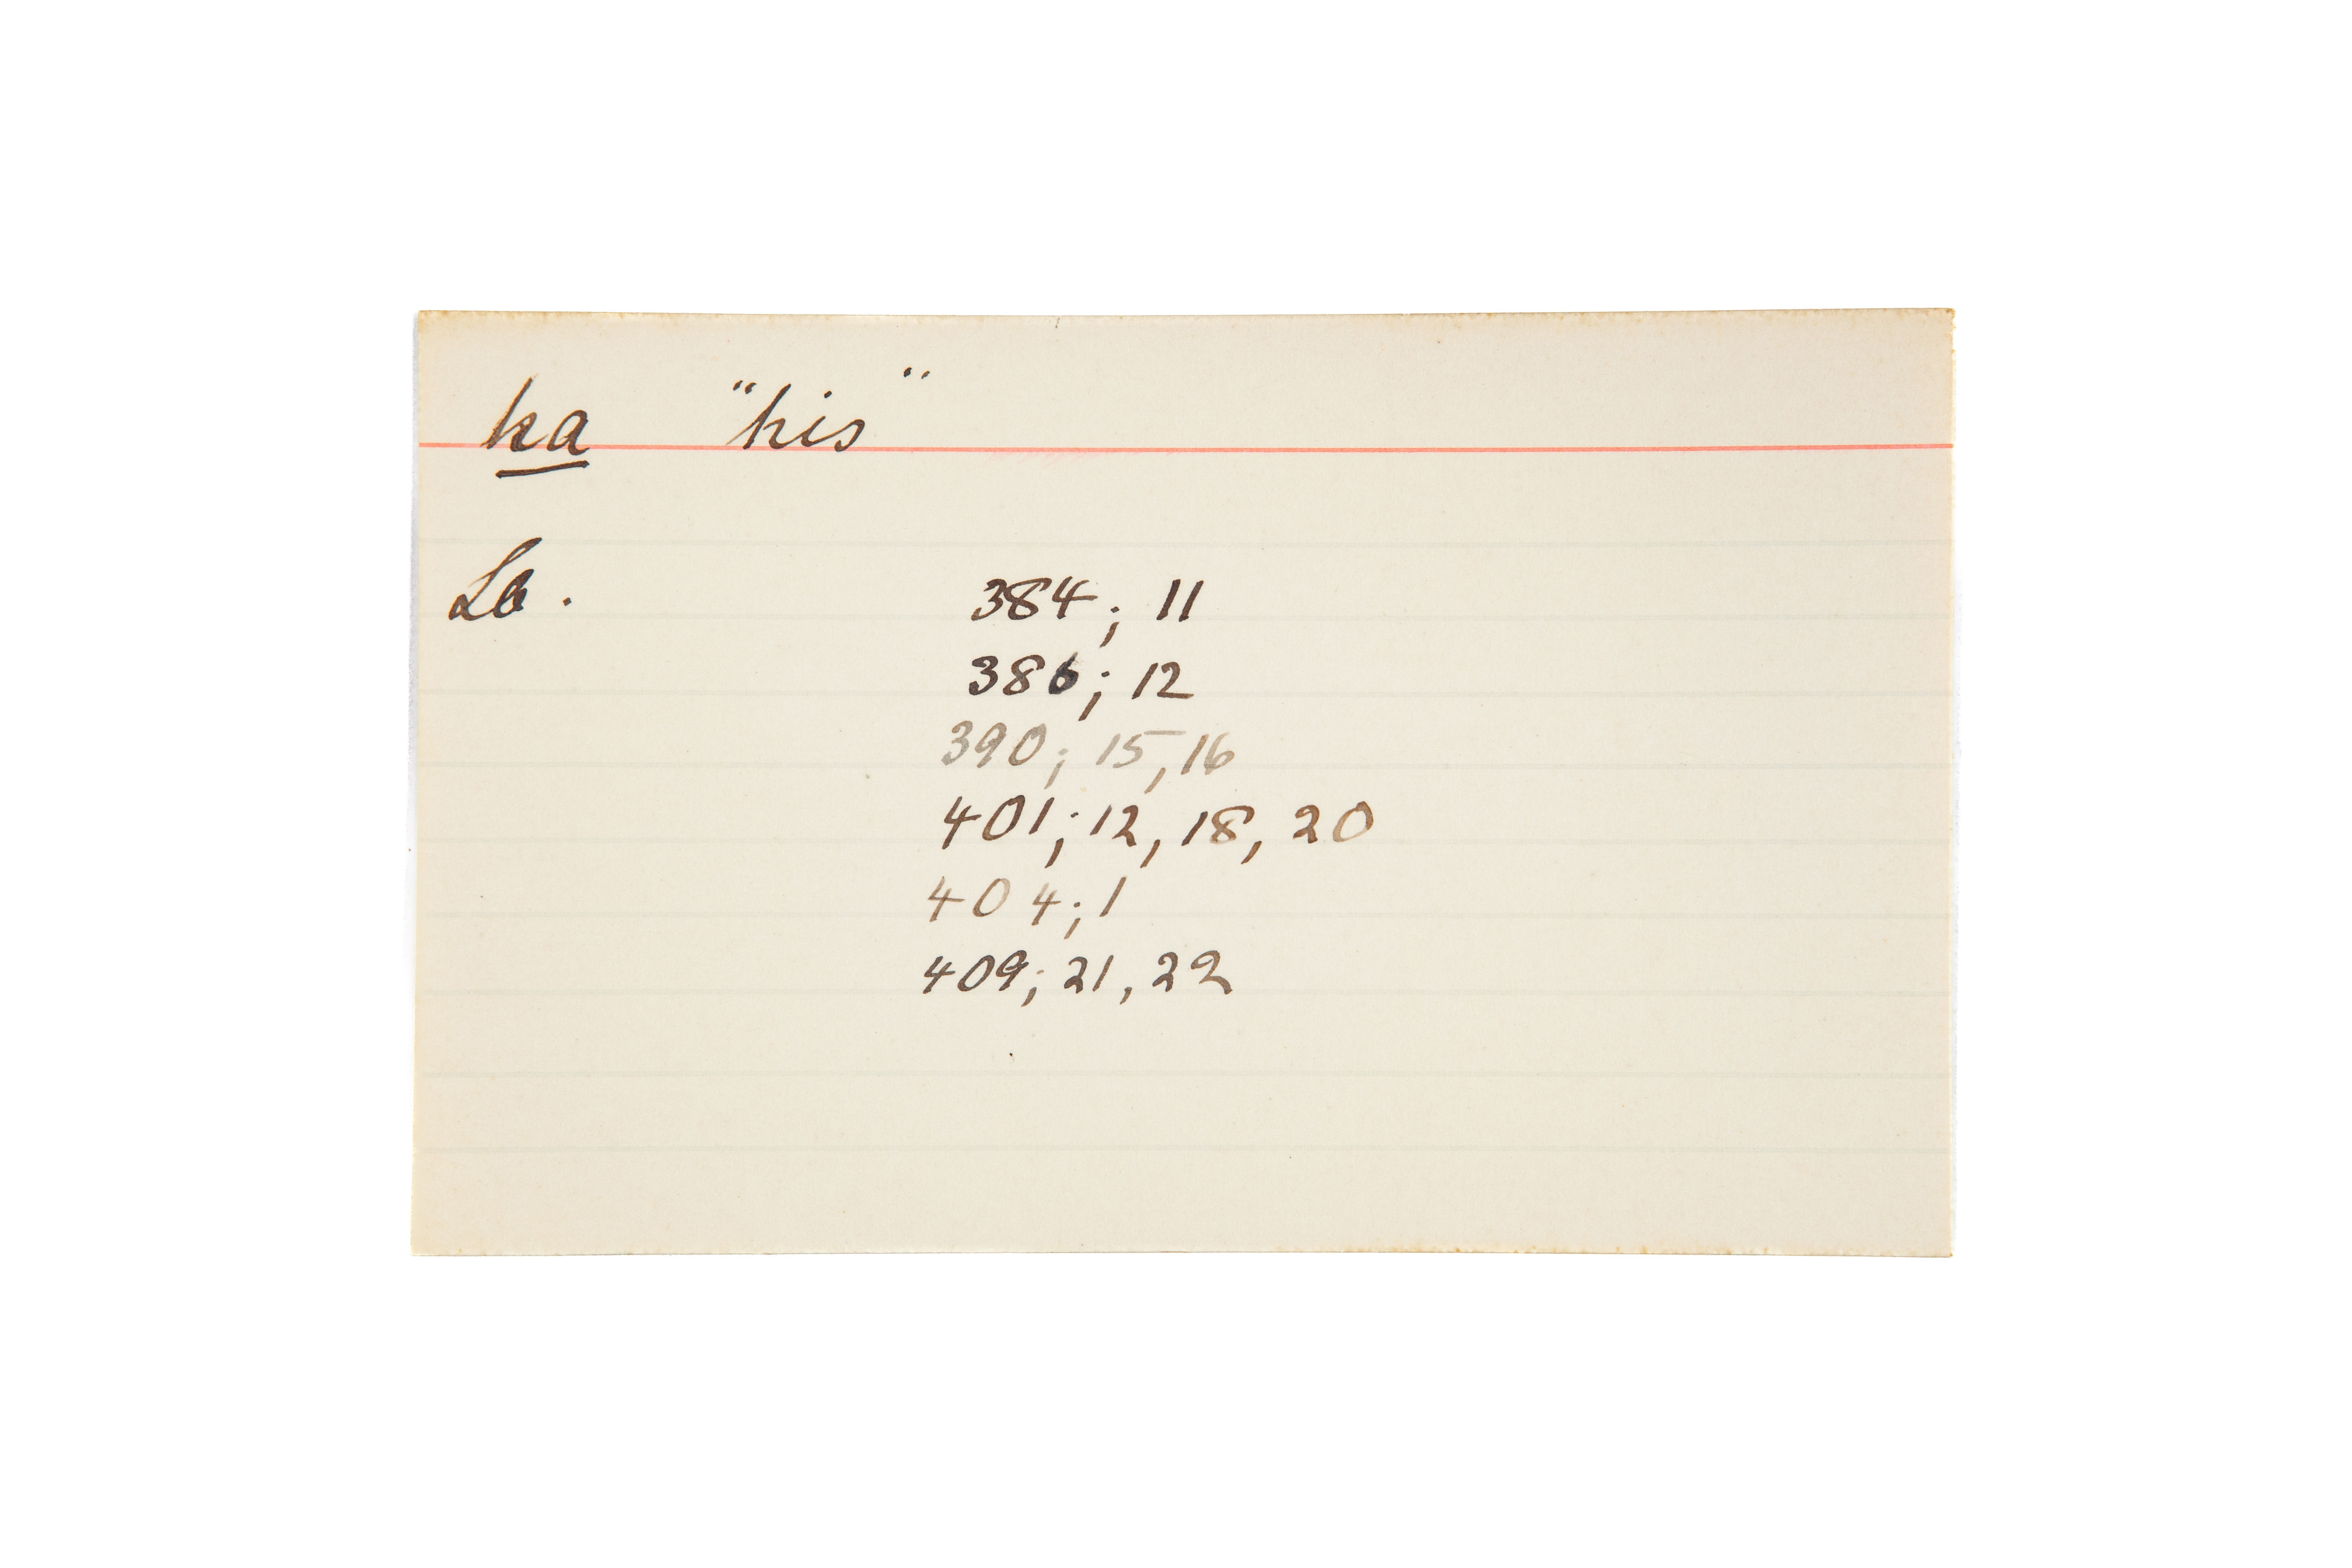 ka "his"
Lo. 384; 11
386; 12
390; 15, 16
401; 12, 18, 20
404; 1
409; 21, 22